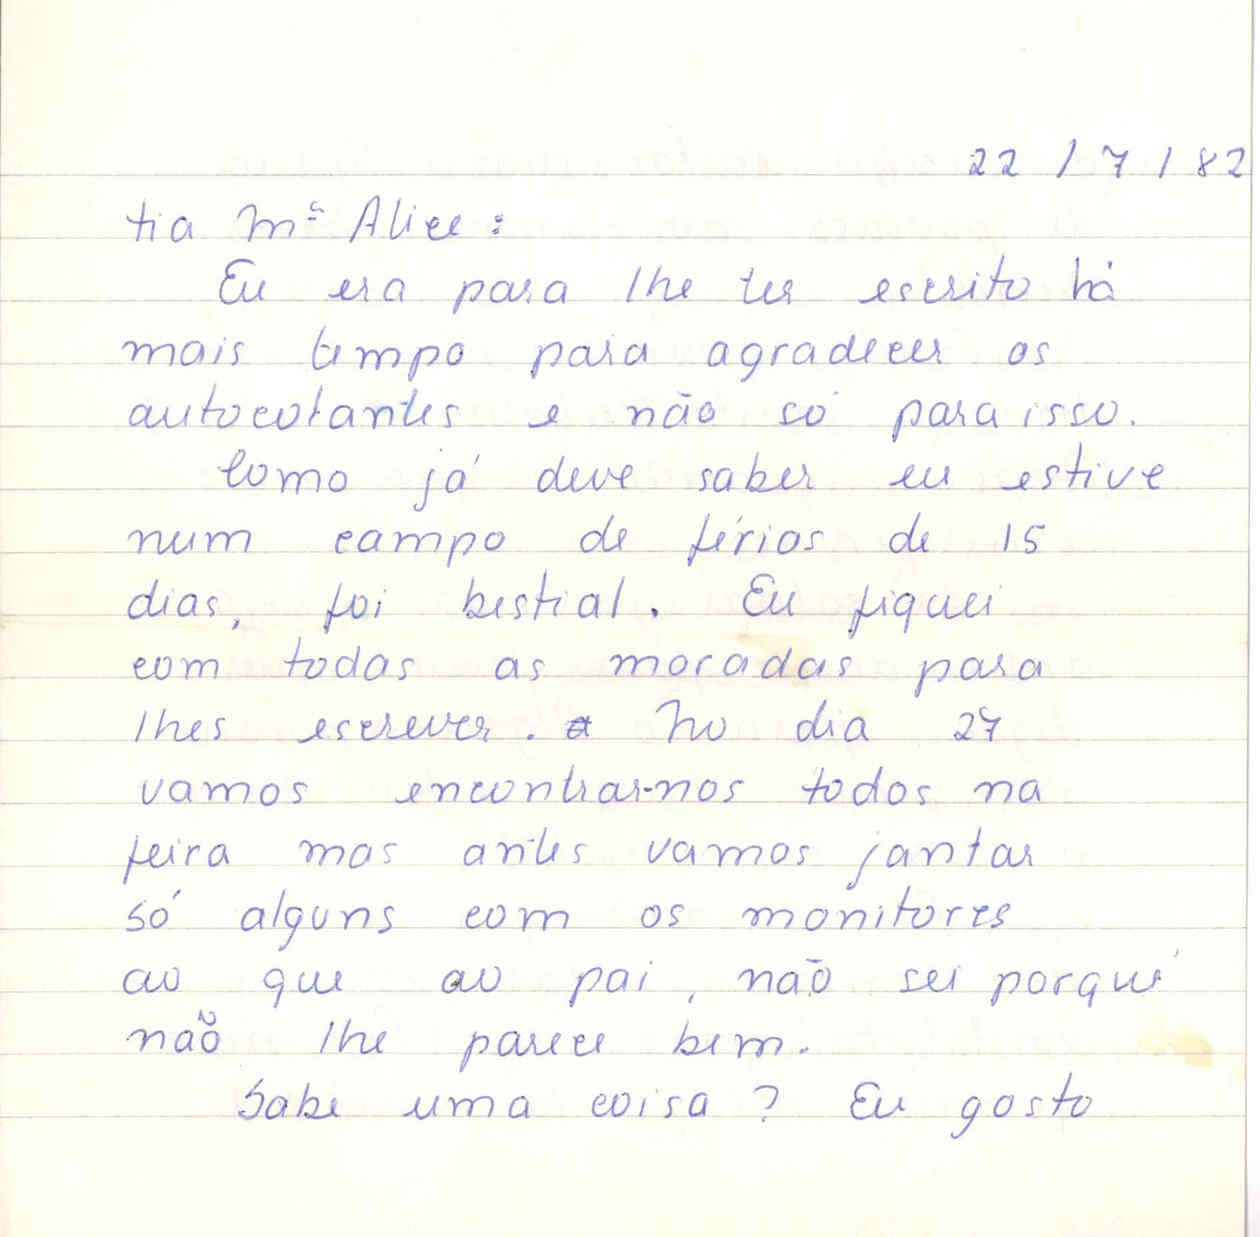 22/7/82
tia Mª Alice:
Eu era para lhe ter escrito há
mais tempo para agradecer os
autocolantes e não só para isso.
Como já deve saber eu estive
num campo de férias de 15
dias, foi bestial. Eu fiquei
com todas as moradas para
lhes escrever. No dia 27
vamos encontrar-nos todos na
feira mas antes vamos jantar
só alguns com os monitores
ao que ao pai, não sei porquê
não lhe parece bem.
Sabe uma coisa? Eu gosto